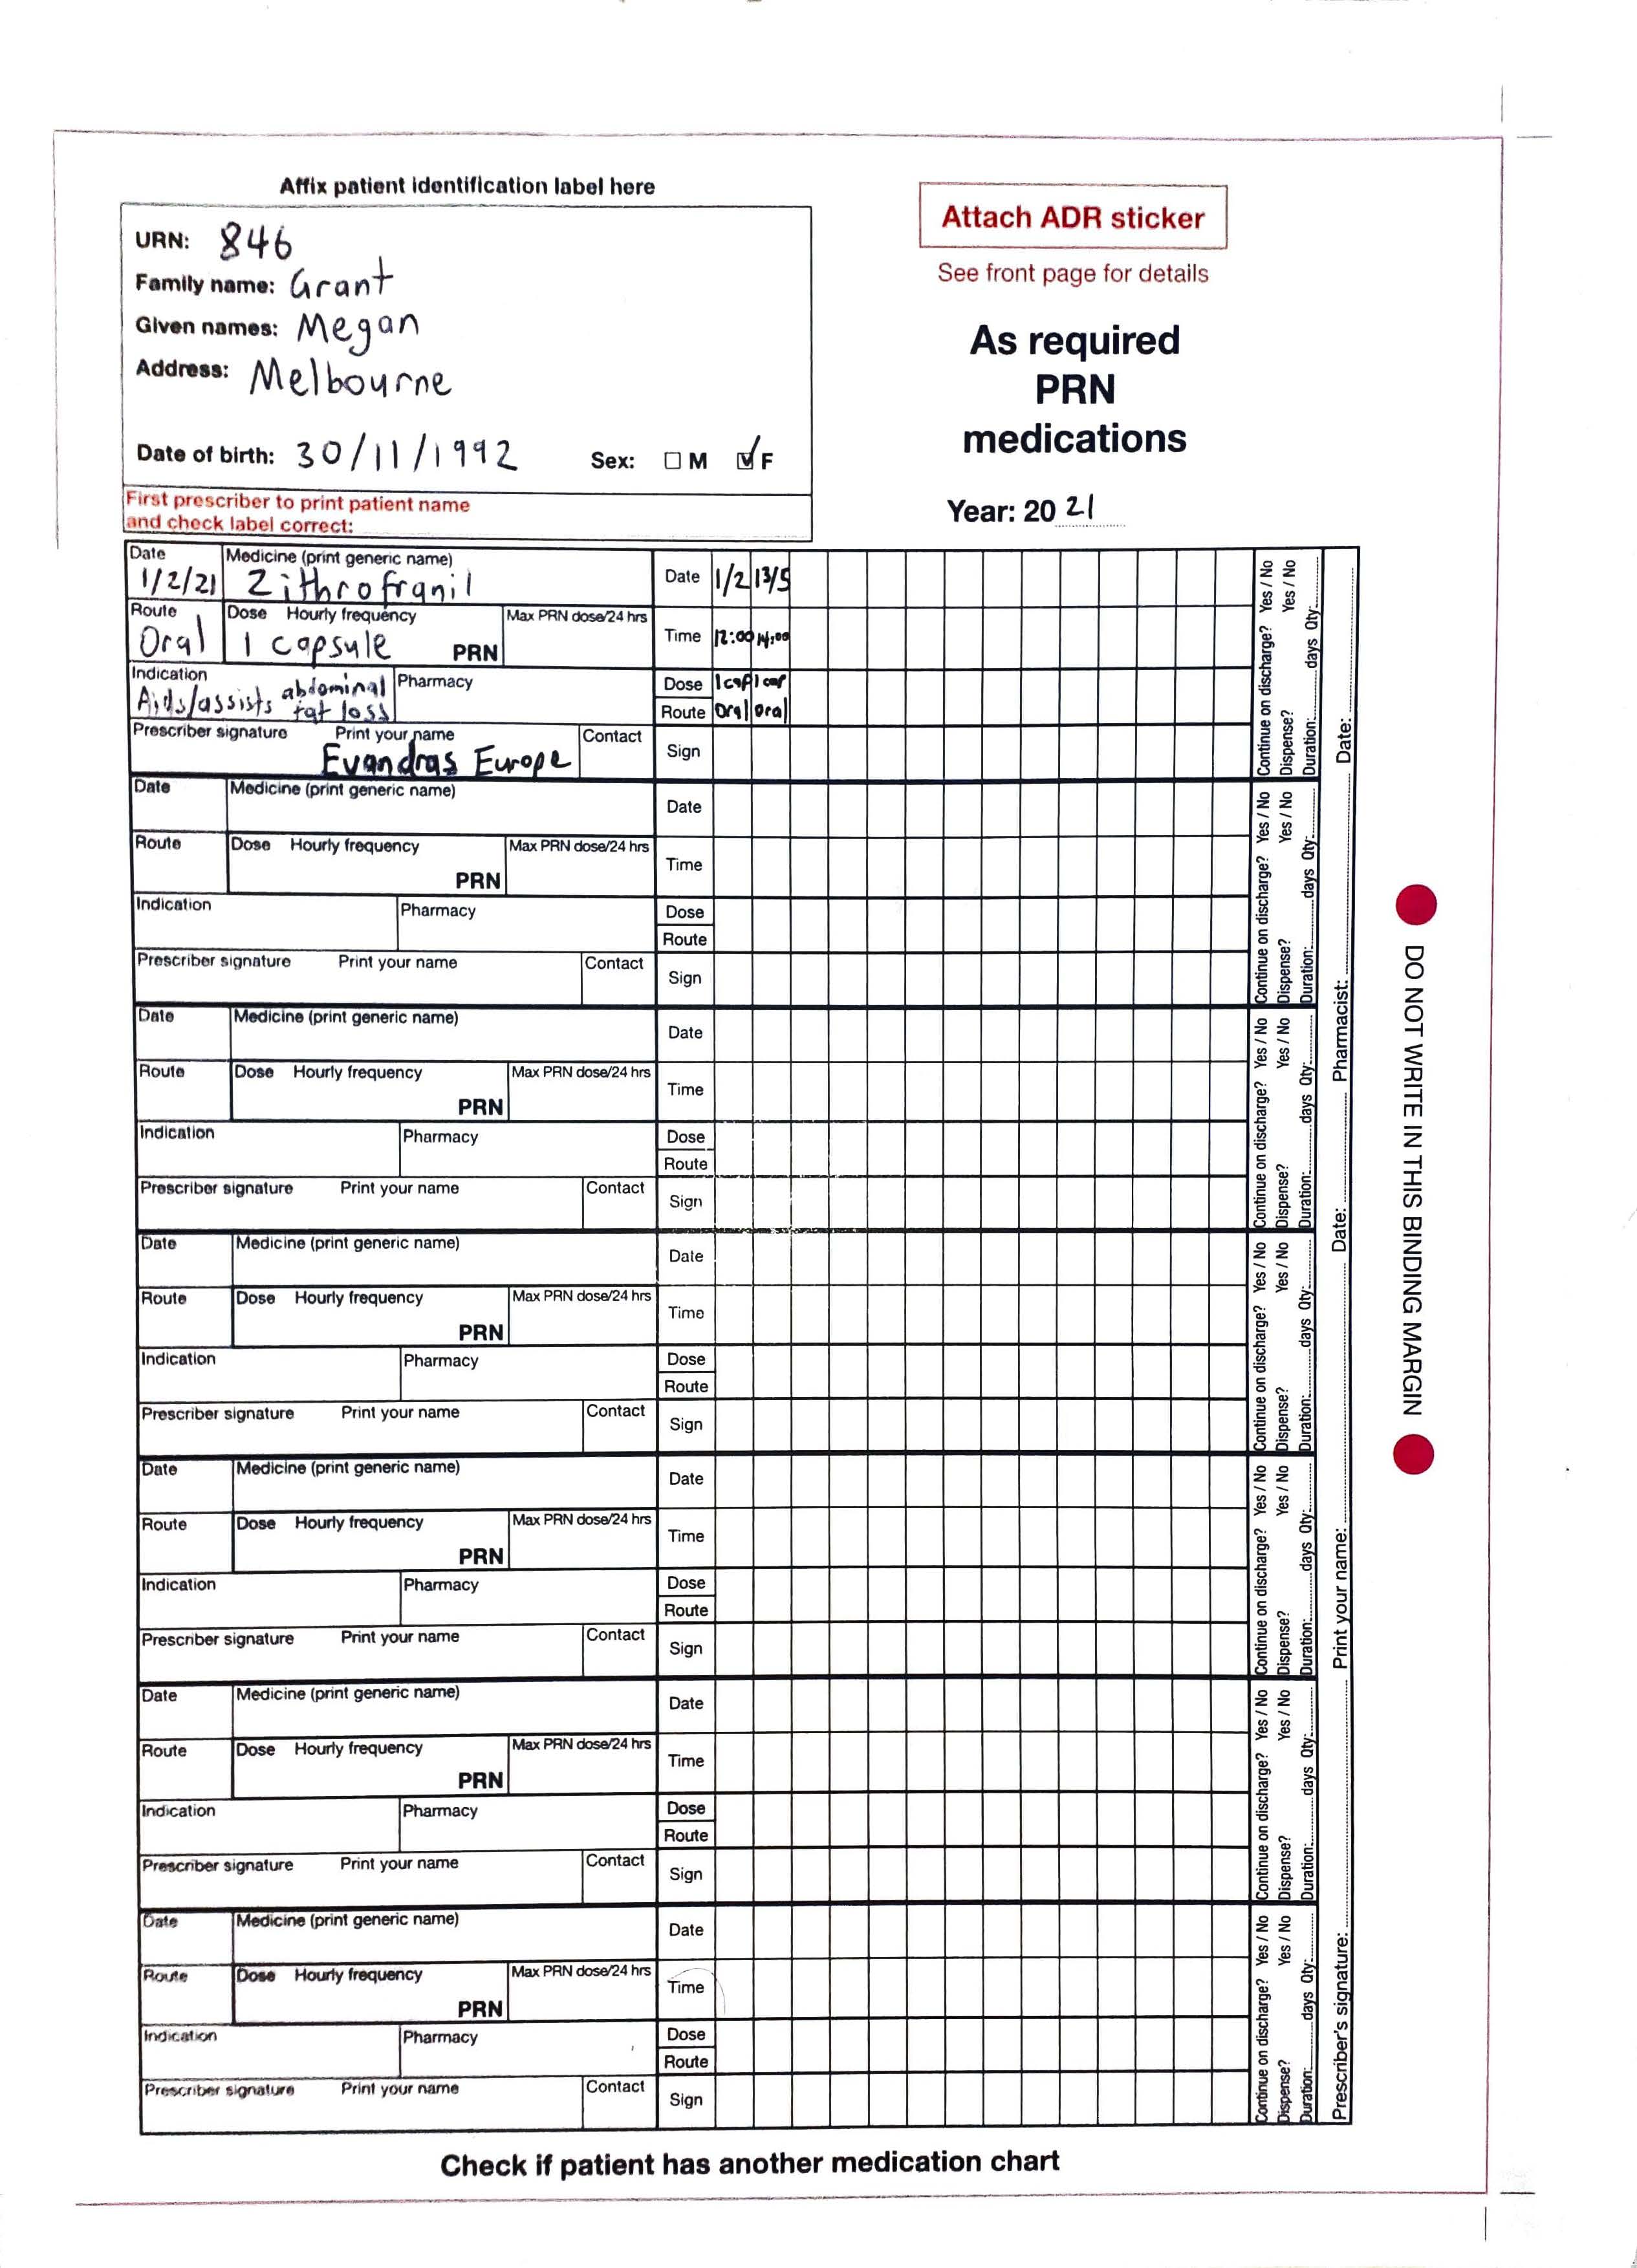 Affix patient identification label here
URN: 846
Family name: Grant
Given names: Megan
Address: Melbourne
Date of birth: 30/11/1992 Sex: M F
First prescriber to print patient name
and check label correct:
Attach ADR sticker
See front page for details
As required
PRN
medications
Year: 20 21
Date Medicine (print generic name) Date 1/2 13/5
1/2/21 Zithrofranil
Route Dose Hourly frequency Max PRN dose/24 hrs Time 12:00 14:00
Oral 1 capsule PRN
Indication Pharmacy Dose 1cap 1cap
Aids/assists abdominal fat loss Route Oral Oral
Prescriber signature Print your name Contact Sign
Evandras Europe
Continue on discharge? Yes / No
Dispense? Yes / No
Duration: days Qty:
Date Medicine (print generic name) Date
Route Dose Hourly frequency Max PRN dose/24 hrs Time
PRN
Indication Pharmacy Dose
Route
Prescriber signature Print your name Contact Sign
Continue on discharge? Yes / No
Dispense? Yes / No
Duration: days Qty:
Date Medicine (print generic name) Date
Route Dose Hourly frequency Max PRN dose/24 hrs Time
PRN
Indication Pharmacy Dose
Route
Prescriber signature Print your name Contact Sign
Continue on discharge? Yes / No
Dispense? Yes / No
Duration: days Qty:
Date Medicine (print generic name) Date
Route Dose Hourly frequency Max PRN dose/24 hrs Time
PRN
Indication Pharmacy Dose
Route
Prescriber signature Print your name Contact Sign
Continue on discharge? Yes / No
Dispense? Yes / No
Duration: days Qty:
Date Medicine (print generic name) Date
Route Dose Hourly frequency Max PRN dose/24 hrs Time
PRN
Indication Pharmacy Dose
Route
Prescriber signature Print your name Contact Sign
Continue on discharge? Yes / No
Dispense? Yes / No
Duration: days Qty:
Date Medicine (print generic name) Date
Route Dose Hourly frequency Max PRN dose/24 hrs Time
PRN
Indication Pharmacy Dose
Route
Prescriber signature Print your name Contact Sign
Continue on discharge? Yes / No
Dispense? Yes / No
Duration: days Qty:
Date Medicine (print generic name) Date
Route Dose Hourly frequency Max PRN dose/24 hrs Time
PRN
Indication Pharmacy Dose
Route
Prescriber signature Print your name Contact Sign
Continue on discharge? Yes / No
Dispense? Yes / No
Duration: days Qty:
Prescriber's signature: Print your name: Date: Pharmacist: Date:
DO NOT WRITE IN THIS BINDING MARGIN
Check if patient has another medication chart